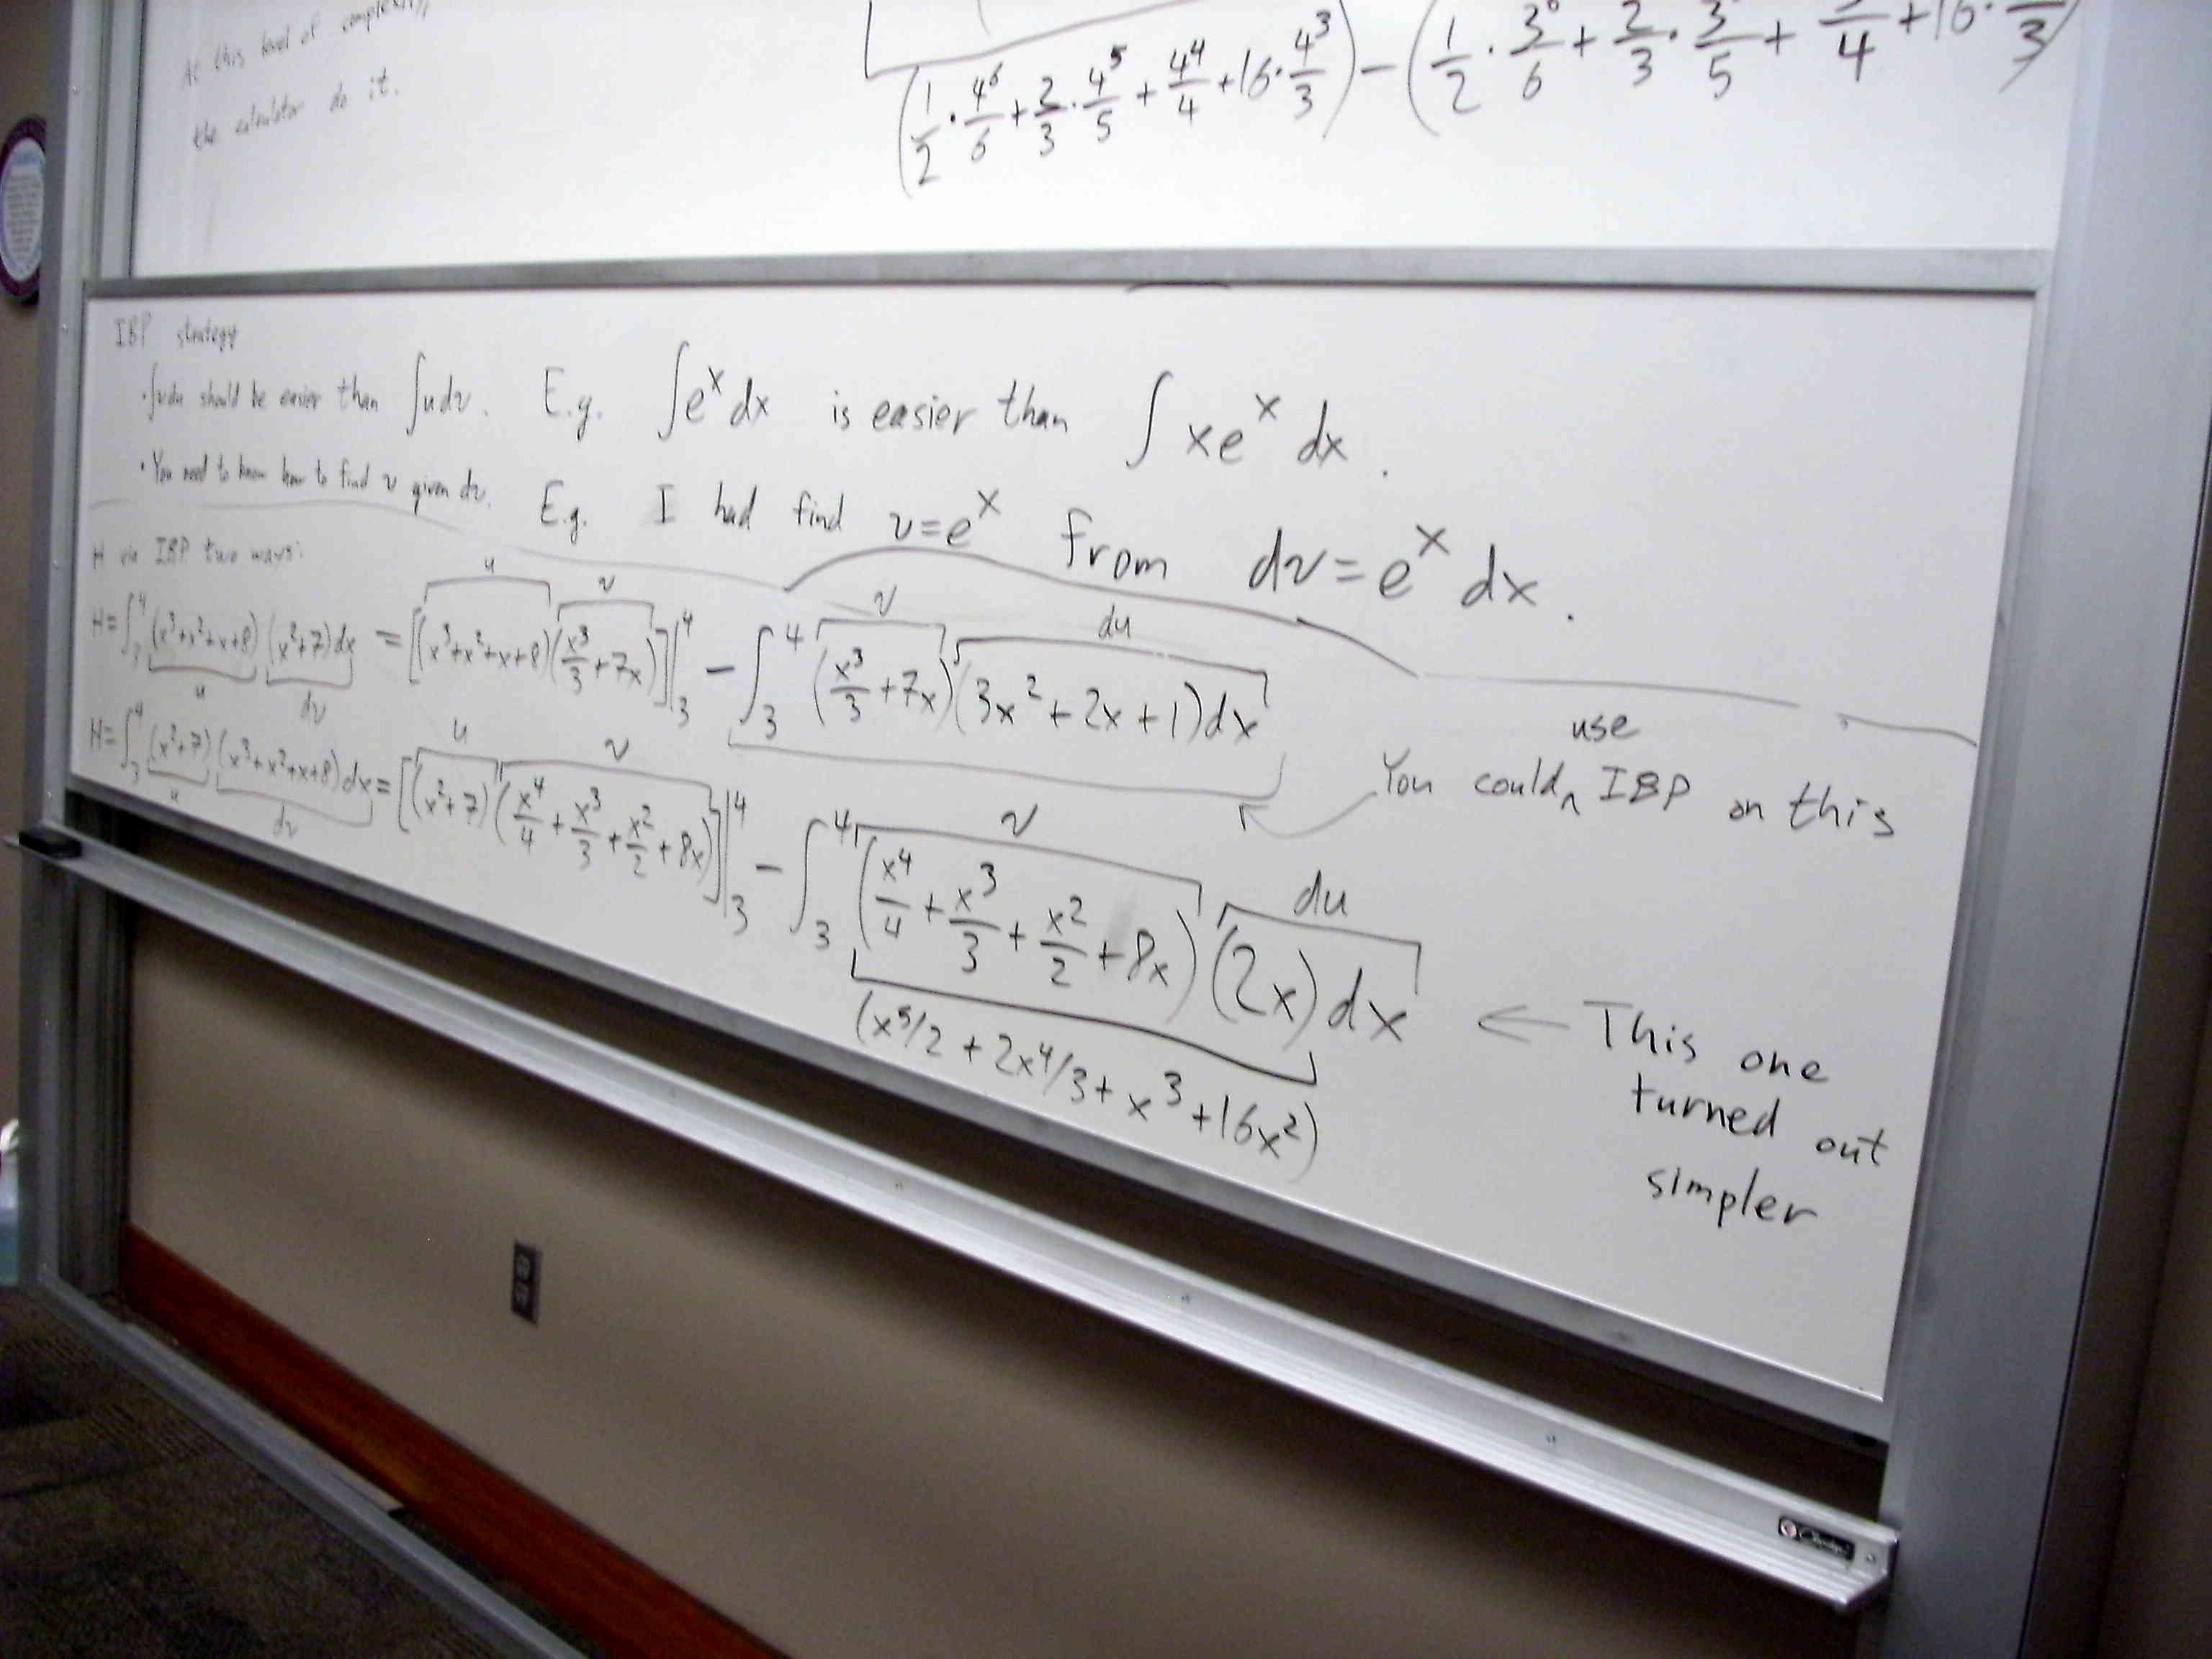 At this level of complexity,
the calculator do it.
(1/2 · 4⁶/6 + 2/3 · 4⁵/5 + 4⁴/4 + 16 · 4³/3) − (1/2 · 3⁶/6 + 2/3 · 3⁵/5 + /4 + 16 · /3)
IBP strategy
· ∫vdu should be easier than ∫udv. E.g. ∫eˣ dx is easier than ∫ xeˣ dx.
· You need to know how to find v given dv. E.g. I had find v=eˣ from dv = eˣ dx.
H via IBP two ways:
u v v du
H = ∫₃⁴ (x³+x²+x+8) (x²+7) dx = [(x³+x²+x+8)(x³/3 + 7x)]|₃⁴ − ∫₃⁴ (x³/3 + 7x)(3x² + 2x + 1) dx
u dv
use
You could ∧ IBP on this
u v v du
H = ∫₃⁴ (x²+7) (x³+x²+x+8) dx = [(x²+7)(x⁴/4 + x³/3 + x²/2 + 8x)]|₃⁴ − ∫₃⁴ (x⁴/4 + x³/3 + x²/2 + 8x)(2x) dx ← This one
u dv
turned out
simpler
(x⁵/2 + 2x⁴/3 + x³ + 16x²)